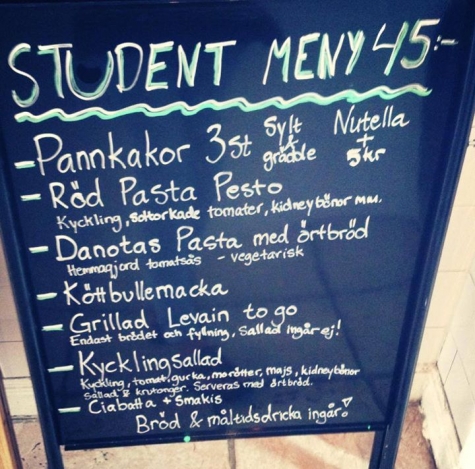 STUDENT MENY 45:-
- Pannkakor 3st Sylt & grädde Nutella + 5kr
- Röd Pasta Pesto
Kyckling, soltorkade tomater, kidneybönor mm.
- Danotas Pasta med örtbröd
Hemmagjord tomatsås - vegetarisk
- Köttbullemacka
- Grillad Levain to go
Endast brödet och fyllning, Sallad ingår ej!
- Kycklingsallad
Kyckling, tomat, gurka, morötter, majs, kidneybönor
Sallad & krutonger. Serveras med örtbröd.
- Ciabatta + Smakis
Bröd & måltidsdricka ingår!